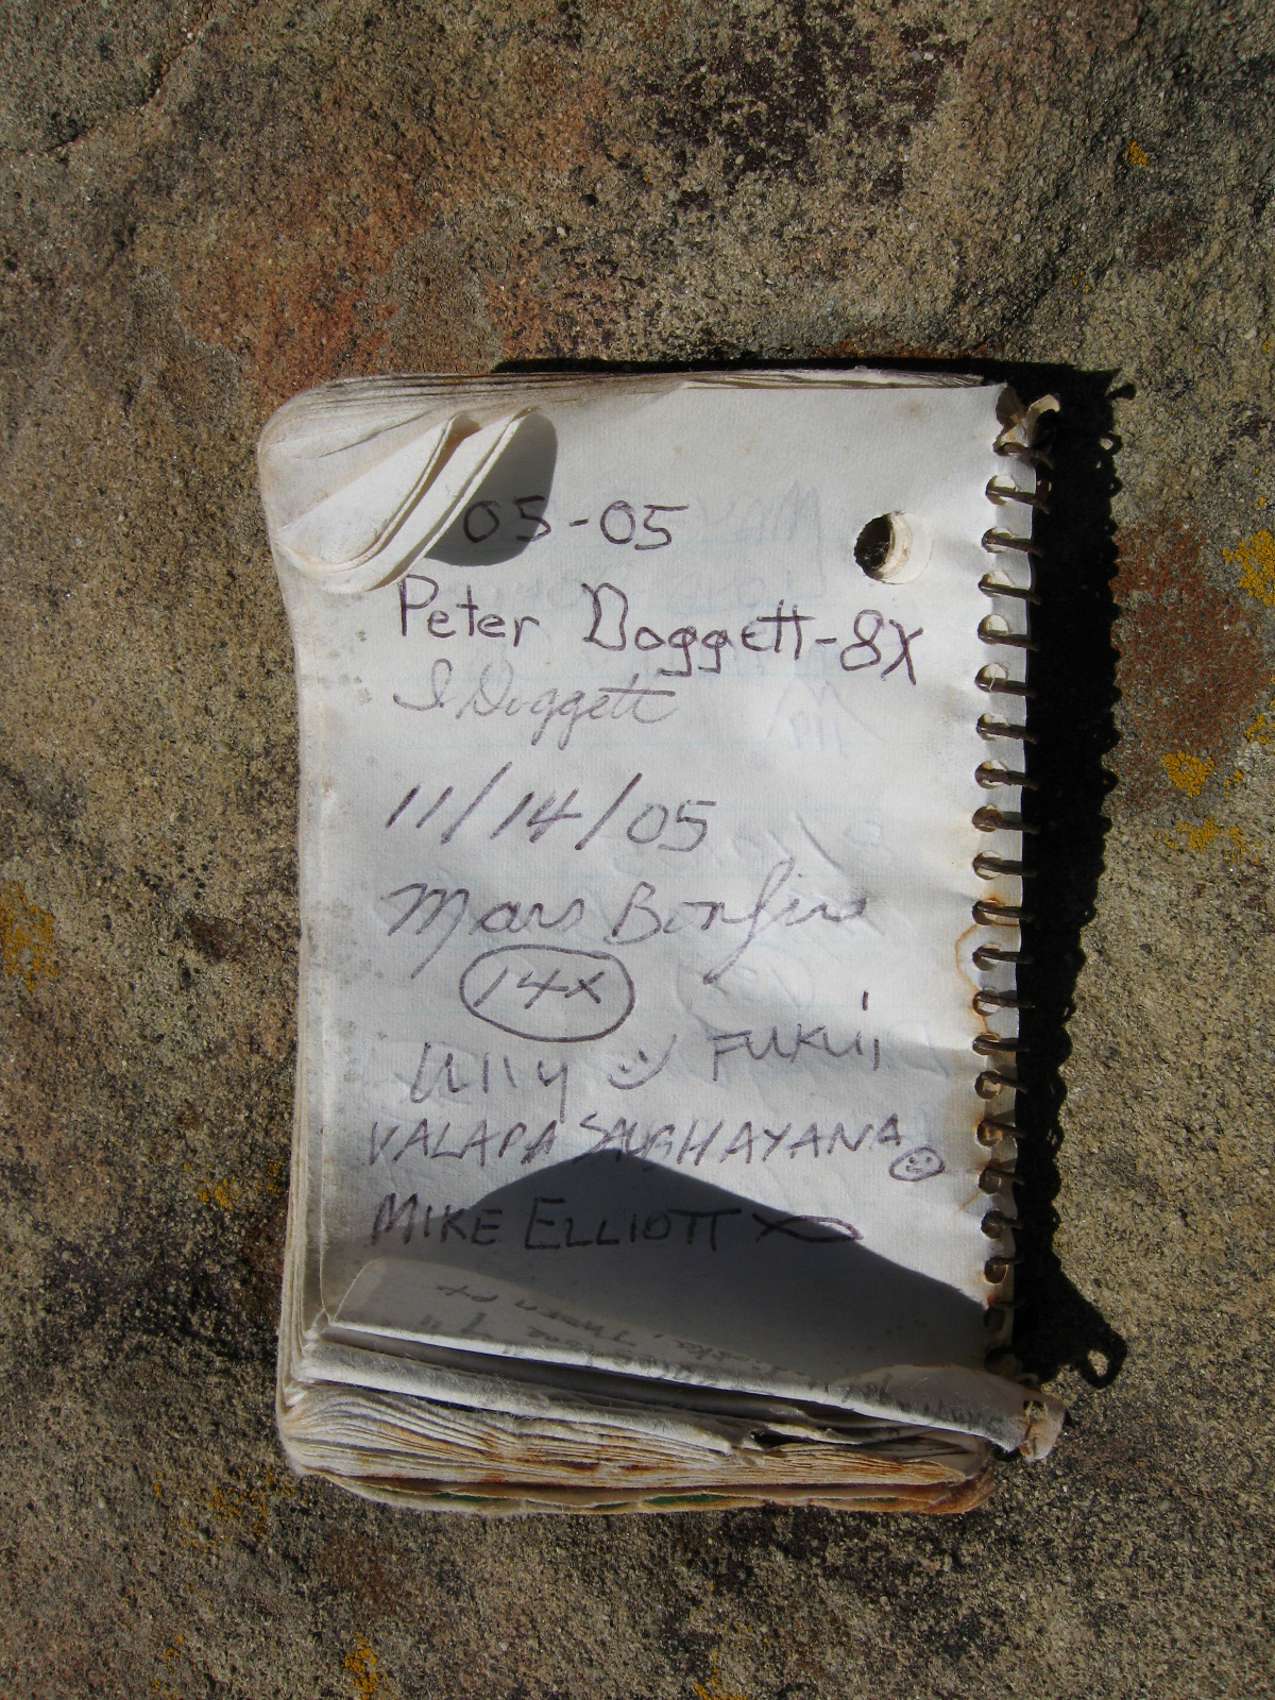 05-05
Peter Doggett-8X
I. Doggett
11/14/05
Mars Bonfire
14x
Lilly Fukui
VALAPA SAUGHAYANA
MIKE ELLIOTT